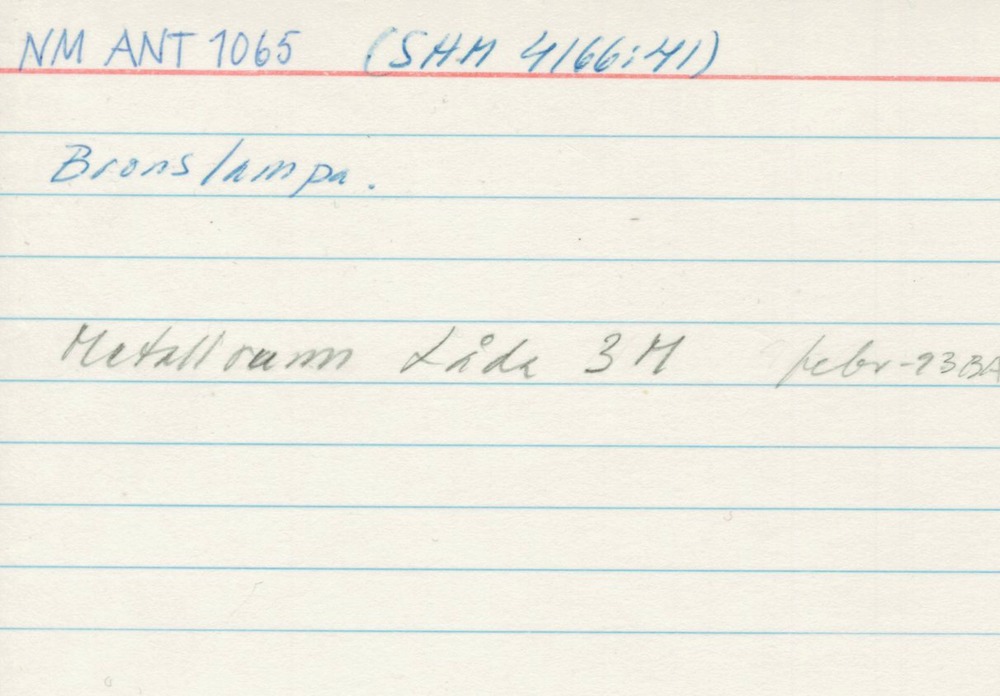 NM ANT 1065 (SHM 4166:41)
Bronslampa.
Metallrum Låda 3 M febr-93 BA